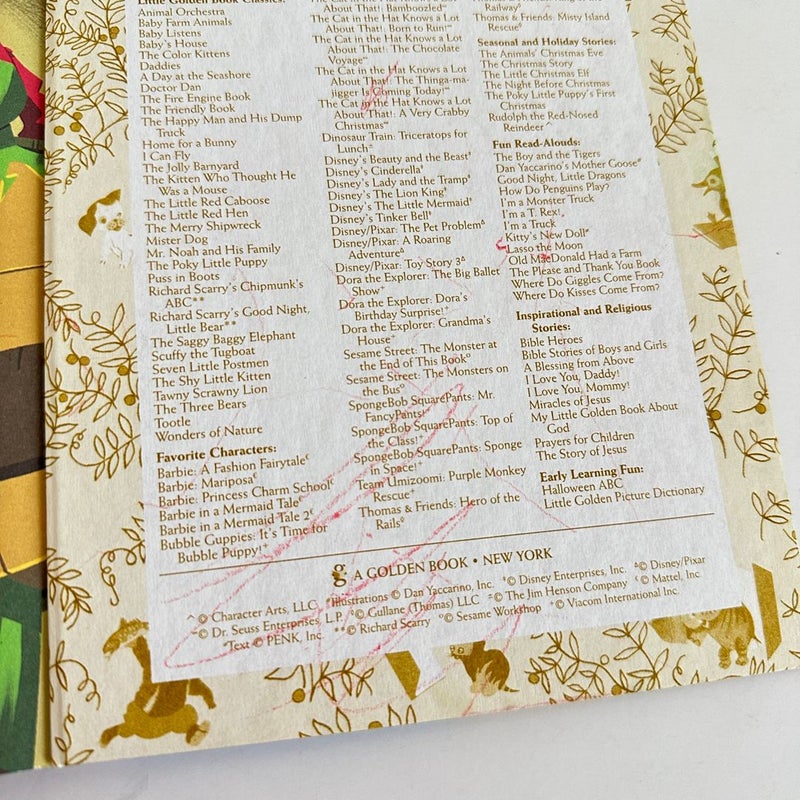 Little Golden Book Classics:
Animal Orchestra
Baby Farm Animals
Baby Listens
Baby's House
The Color Kittens
Daddies
A Day at the Seashore
Doctor Dan
The Fire Engine Book
The Friendly Book
The Happy Man and His Dump
Truck
Home for a Bunny
I Can Fly
The Jolly Barnyard
The Kitten Who Thought He
Was a Mouse
The Little Red Caboose
The Little Red Hen
The Merry Shipwreck
Mister Dog
Mr. Noah and His Family
The Poky Little Puppy
Puss in Boots
Richard Scarry's Chipmunk's
ABC**
Richard Scarry's Good Night,
Little Bear**
The Saggy Baggy Elephant
Scuffy the Tugboat
Seven Little Postmen
The Shy Little Kitten
Tawny Scrawny Lion
The Three Bears
Tootle
Wonders of Nature
Favorite Characters:
Barbie: A Fashion Fairytale€
Barbie: Mariposa€
Barbie: Princess Charm School€
Barbie in a Mermaid Tale€
Barbie in a Mermaid Tale 2€
Bubble Guppies: It's Time for
Bubble Puppy!+
The Cat in the Hat Knows a Lot
About That! Bamboozled~
The Cat in the Hat Knows a Lot
About That! Born to Run!~
The Cat in the Hat Knows a Lot
About That!: The Chocolate
Voyage~
The Cat in the Hat Knows a Lot
About That! The Thinga-ma-
jigger Is Coming Today!~
The Cat in the Hat Knows a Lot
About That!: A Very Crabby
Christmas~
Dinosaur Train: Triceratops for
Lunch
Disney's Beauty and the Beast†
Disney's Cinderella†
Disney's Lady and the Tramp†
Disney's The Lion King†
Disney's The Little Mermaid†
Disney's Tinker Bell†
Disney/Pixar: The Pet Problem∆
Disney/Pixar: A Roaring
Adventure∆
Disney/Pixar: Toy Story 3∆
Dora the Explorer: The Big Ballet
Show+
Dora the Explorer: Dora's
Birthday Surprise!+
Dora the Explorer: Grandma's
House+
Sesame Street: The Monster at
the End of This Bookº
Sesame Street: The Monsters on
the Busº
SpongeBob SquarePants: Mr.
FancyPants!+
SpongeBob SquarePants: Top of
the Class!+
SpongeBob SquarePants: Sponge
in Space!+
Team Umizoomi: Purple Monkey
Rescue+
Thomas & Friends: Hero of the
Rails◊
Railway◊
Thomas & Friends: Misty Island
Rescue◊
Seasonal and Holiday Stories:
The Animals' Christmas Eve
The Christmas Story
The Little Christmas Elf
The Night Before Christmas
The Poky Little Puppy's First
Christmas
Rudolph the Red-Nosed
Reindeer^
Fun Read-Alouds:
The Boy and the Tigers
Dan Yaccarino's Mother Goose#
Good Night, Little Dragons
How Do Penguins Play?
I'm a Monster Truck
I'm a T. Rex!
I'm a Truck
Kitty's New Doll*
Lasso the Moon
Old MacDonald Had a Farm
The Please and Thank You Book
Where Do Giggles Come From?
Where Do Kisses Come From?
Inspirational and Religious
Stories:
Bible Heroes
Bible Stories of Boys and Girls
A Blessing from Above
I Love You, Daddy!
I Love You, Mommy!
Miracles of Jesus
My Little Golden Book About
God
Prayers for Children
The Story of Jesus
Early Learning Fun:
Halloween ABC
Little Golden Picture Dictionary
g A GOLDEN BOOK • NEW YORK
^© Character Arts, LLC #Illustrations © Dan Yaccarino, Inc. †© Disney Enterprises, Inc. ∆© Disney/Pixar
~© Dr. Seuss Enterprises, L.P. ◊© Gullane (Thomas) LLC © The Jim Henson Company €© Mattel, Inc.
*Text © PENK, Inc. **© Richard Scarry º© Sesame Workshop +© Viacom International Inc.